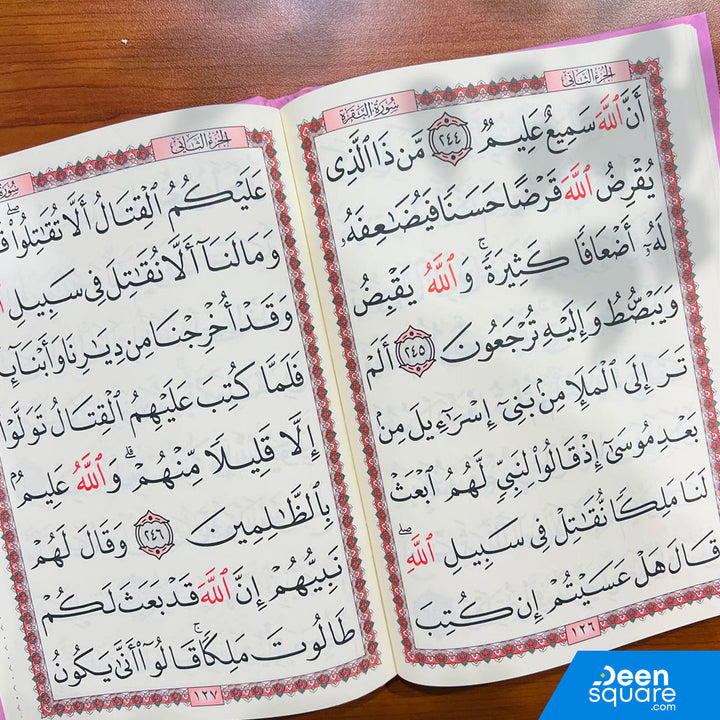 الجزء الثاني
سورة البقرة
أَنَّ ٱللَّهَ سَمِيعٌ عَلِيمٌ ٢٤٤ مَّن ذَا ٱلَّذِى
يُقْرِضُ ٱللَّهَ قَرْضًا حَسَنًا فَيُضَٰعِفَهُۥ
لَهُۥٓ أَضْعَافًا كَثِيرَةً ۚ وَٱللَّهُ يَقْبِضُ
وَيَبْصُۜطُ وَإِلَيْهِ تُرْجَعُونَ ٢٤٥ أَلَمْ
تَرَ إِلَى ٱلْمَلَإِ مِنۢ بَنِىٓ إِسْرَٰٓءِيلَ مِنۢ
بَعْدِ مُوسَىٰٓ إِذْ قَالُوا۟ لِنَبِىٍّ لَّهُمُ ٱبْعَثْ
لَنَا مَلِكًا نُّقَٰتِلْ فِى سَبِيلِ ٱللَّهِ ۖ
قَالَ هَلْ عَسَيْتُمْ إِن كُتِبَ
١٢٦
الجزء الثاني
سورة
عَلَيْكُمُ ٱلْقِتَالُ أَلَّا تُقَٰتِلُوا۟ ۖ
وَمَا لَنَآ أَلَّا نُقَٰتِلَ فِى سَبِيلِ
وَقَدْ أُخْرِجْنَا مِن دِيَٰرِنَا وَأَبْنَآئِ
فَلَمَّا كُتِبَ عَلَيْهِمُ ٱلْقِتَالُ تَوَلَّوْا۟
إِلَّا قَلِيلًا مِّنْهُمْ ۗ وَٱللَّهُ عَلِيمٌۢ
بِٱلظَّٰلِمِينَ ٢٤٦ وَقَالَ لَهُمْ
نَبِيُّهُمْ إِنَّ ٱللَّهَ قَدْ بَعَثَ لَكُمْ
طَالُوتَ مَلِكًا ۚ قَالُوٓا۟ أَنَّىٰ يَكُونُ
١٢٧
Deen
square
.com